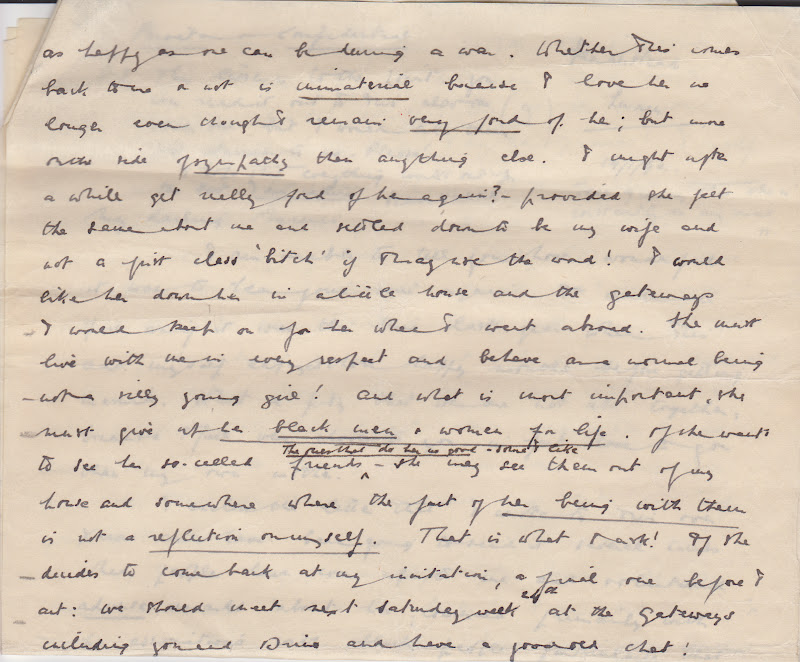 as happy as one can be during a war. Whether this comes
back to me or not is immaterial because I love her no
longer even though I remain very fond of her; but more
on the side of sympathy than anything else. I might after
a while get really fond of her again? - provided she felt
the same about me and settled down to be my wife and
not a first class 'bitch' if I may use the word! I would
like her down her in a little house and the gateways
I would keep on for her when I went abroad. She must
live with me in every respect and behave as a normal being
- not a silly young girl! And what is most important, she
must give up her black men & women for life. If she wants
The ones that do her no good - some I like
to see her so-called friends - she may see them out of my
house and somewhere where the fact of her being with them
is not a reflection on myself. That is what I ask! If she
- decides to come back at my invitation, a final one before I
act: we should meet next Saturday week at the Gateways
including you and and have a good old chat!